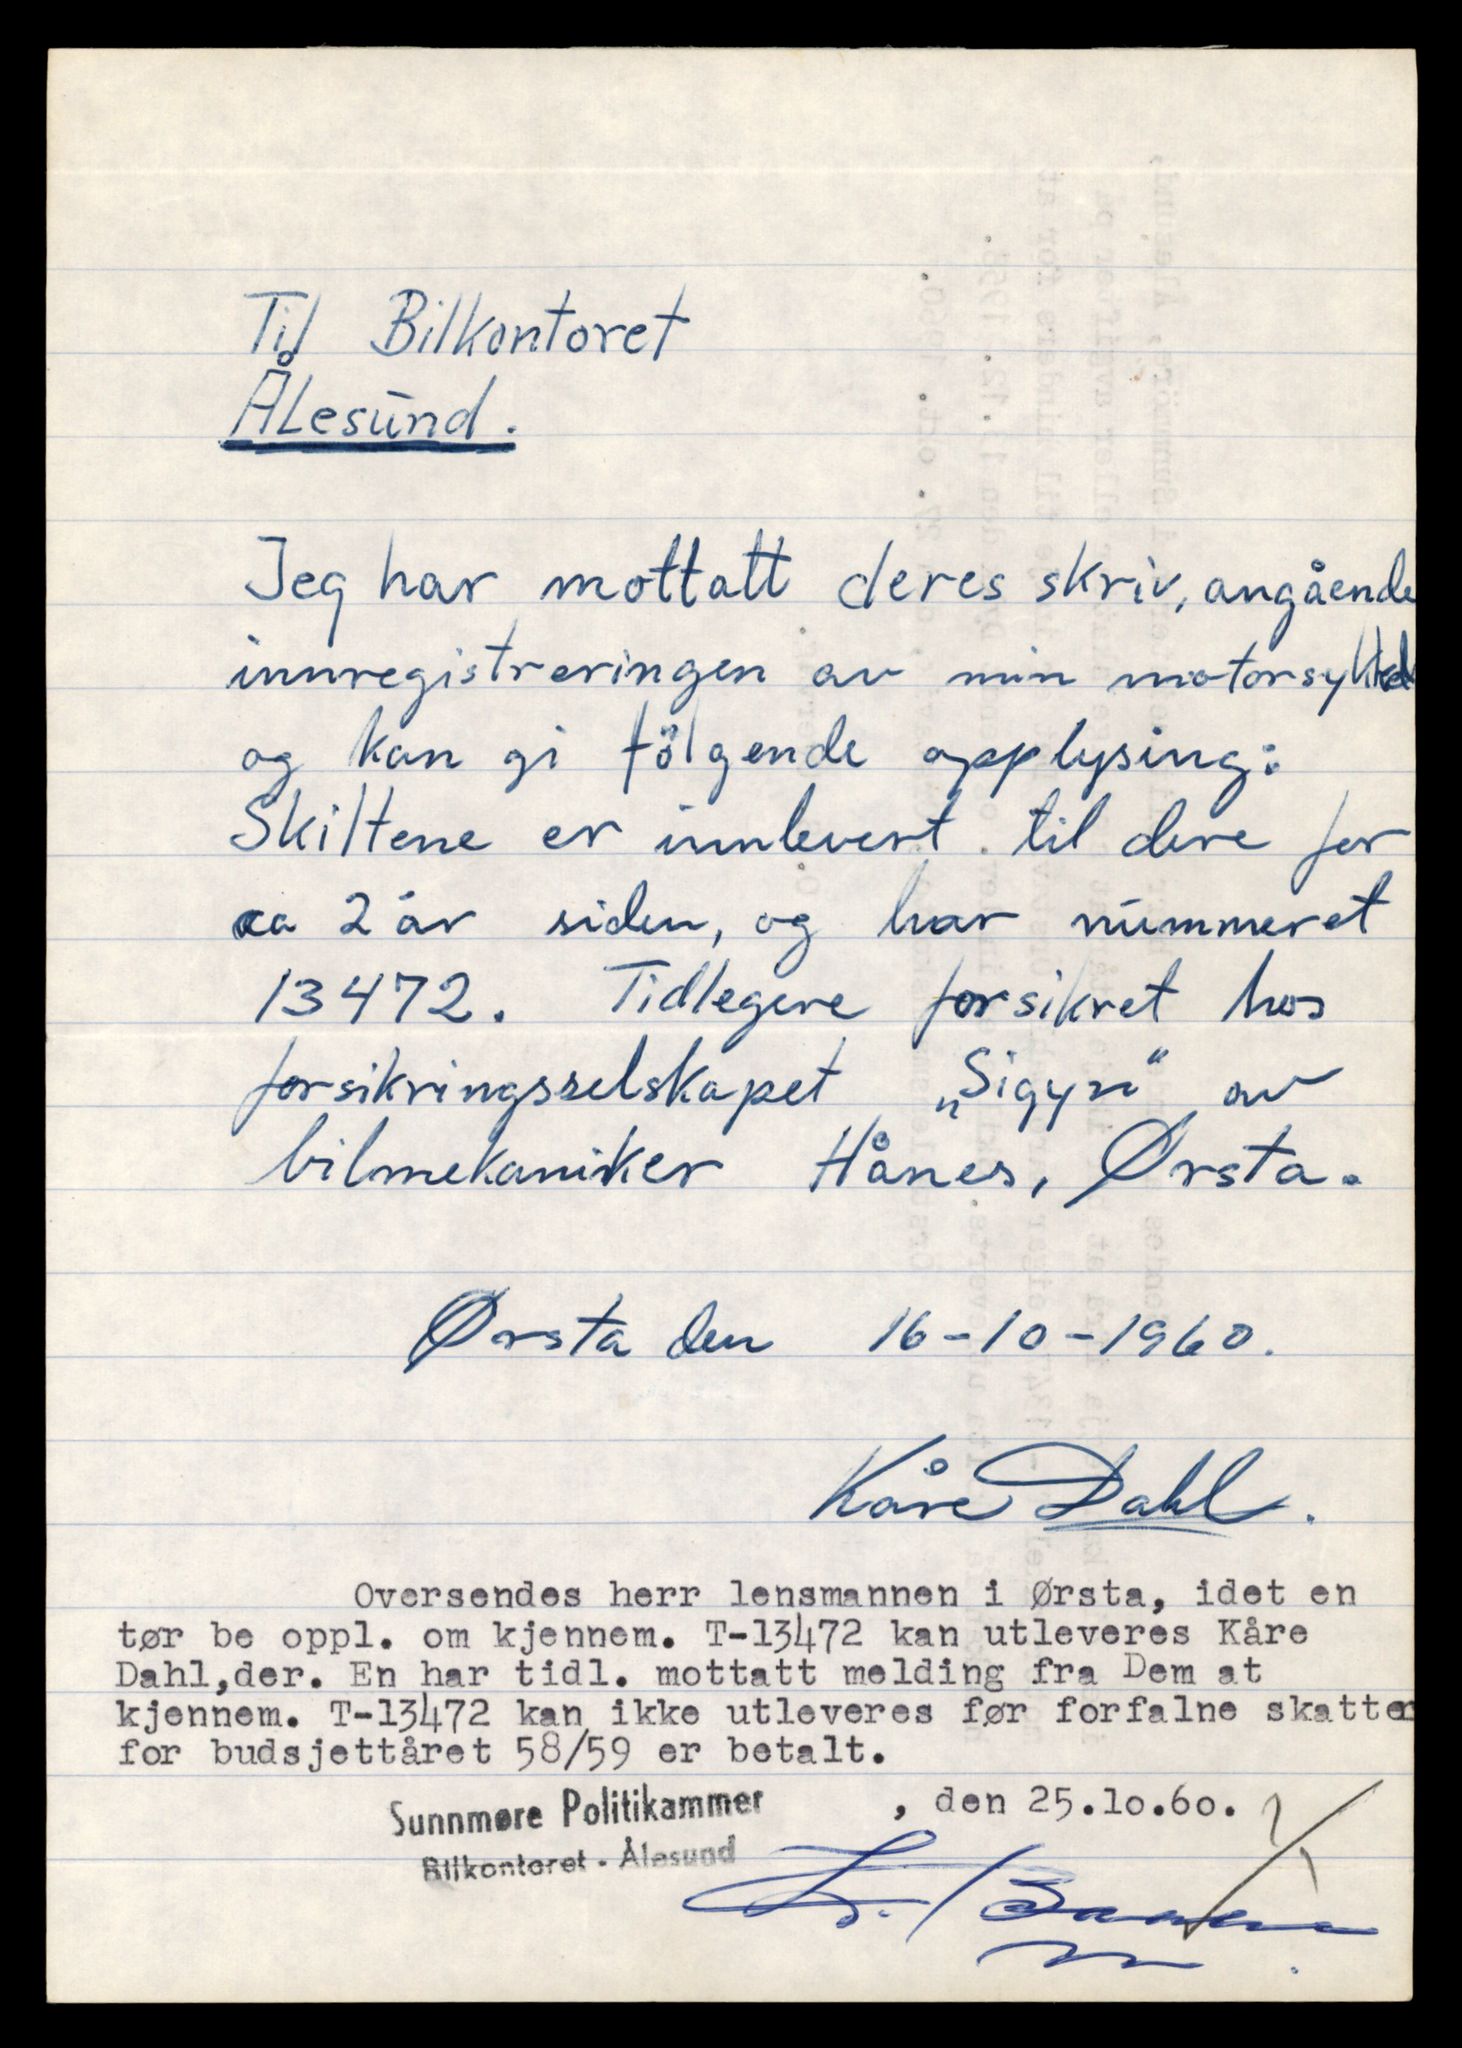 Til Bilkontoret
Ålesund.
Jeg har mottatt deres skriv, angående
innregistreringen av min motorsykkel
og kan gi fölgende opplysing:
Skiltene er innlevert til dere for
ca 2 år siden, og har nummeret
13472. Tidlegere forsikret hos
forsikringsselskapet „Sigyn“ av
bilmekaniker Hånes, Ørsta.
Ørsta den 16-10-1960.
Kåre Dahl.
Oversendes herr lensmannen i Ørsta, idet en
tør be oppl. om kjennem. T-13472 kan utleveres Kåre
Dahl,der. En har tidl. mottatt melding fra Dem at
kjennem. T-13472 kan ikke utleveres før forfalne skatter
for budsjettåret 58/59 er betalt.
Sunnmøre Politikammer , den 25.10.60.
Bilkontoret - Ålesund